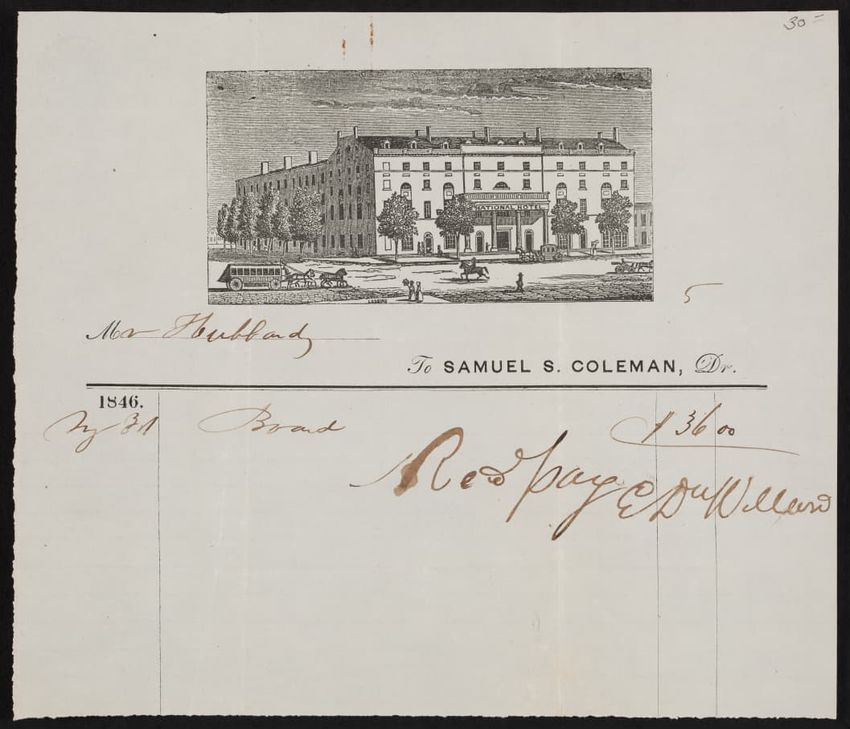 30 –
NATIONAL HOTEL
5
Mr Hubbard
To SAMUEL S. COLEMAN, Dr.
1846.
31 Board $36 00
Recd pay E D Willard